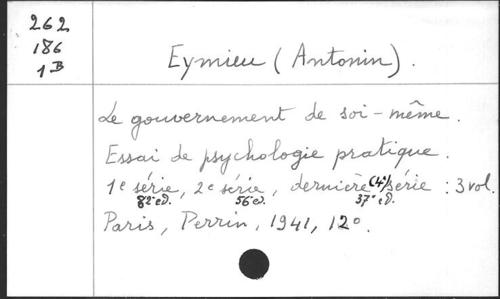 262
186
1B
Eymieu (Antonin).
Le gouvernement de soi-même.
Essai de psychologie pratique.
1e série, 2e série, dernière (4e) série : 3 vol.
82e éd. 56e éd. 37e éd.
Paris, Perrin, 1941, 12o.